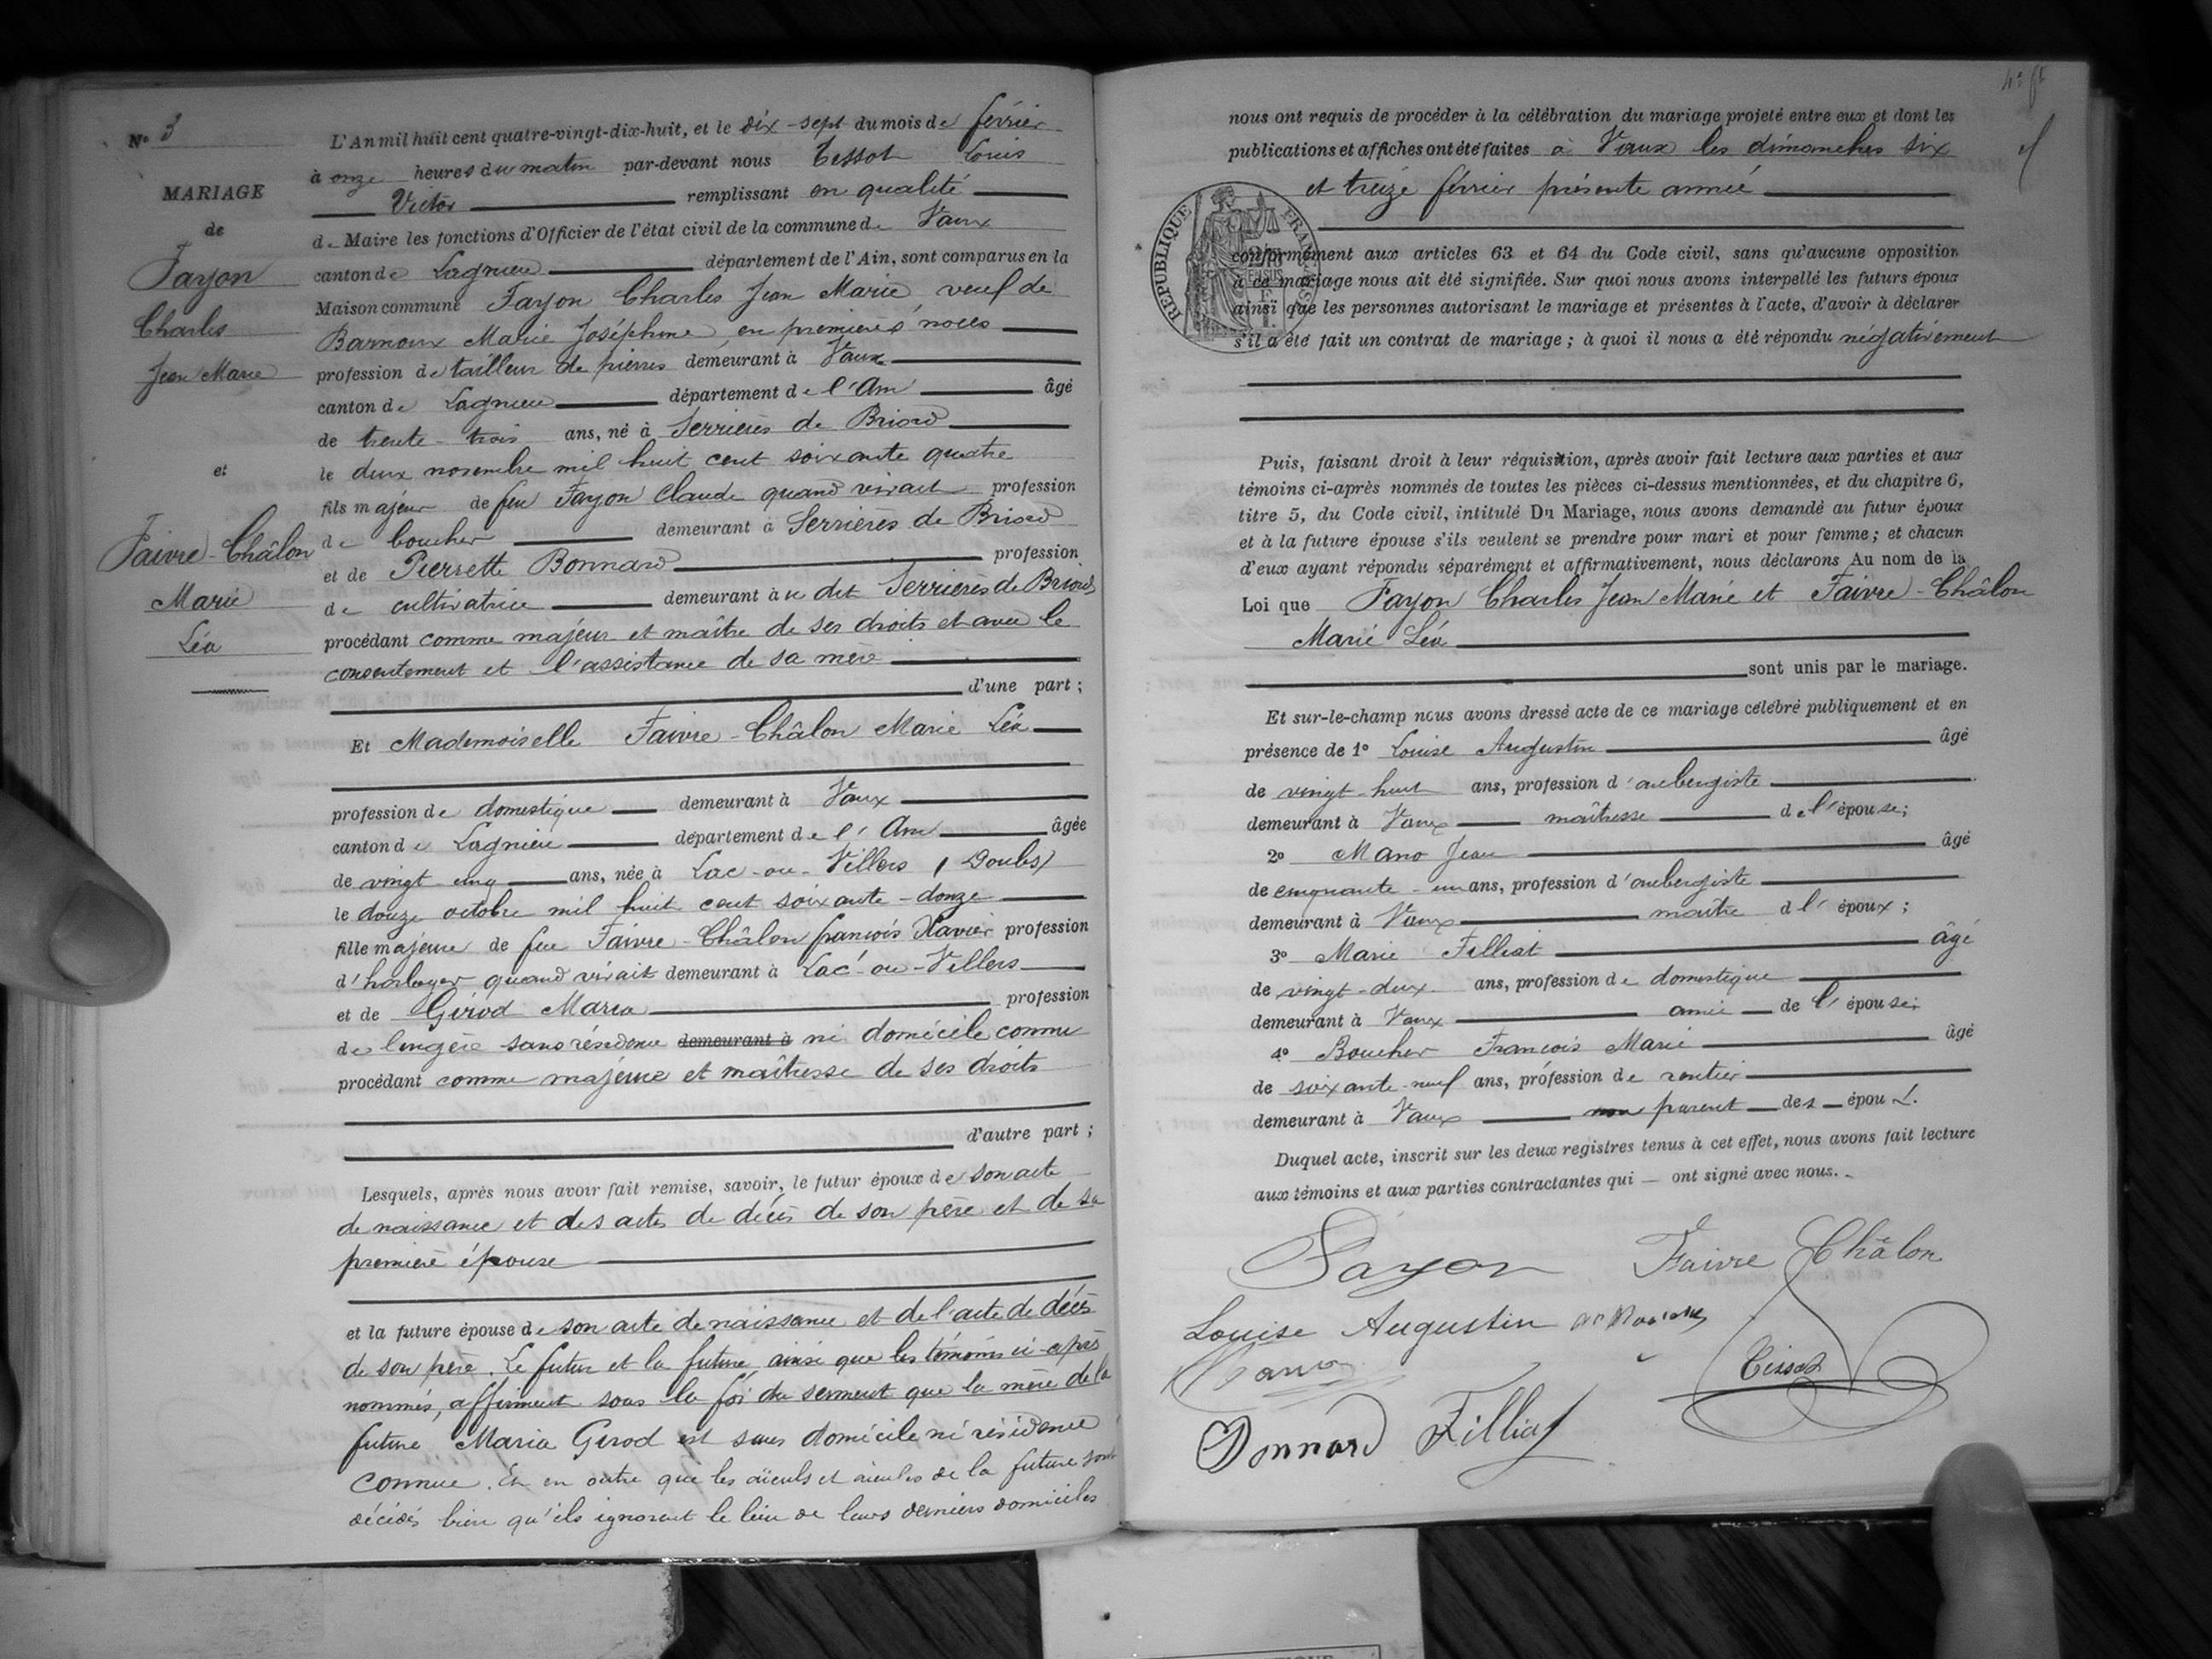 N° 3
MARIAGE
de
Fayon
Charles
Jean Marie
et
Faivre-Châlon
Marie
Léa
L'An mil huit cent quatre-vingt-dix-huit, et le dix-sept du mois de février
à onze heures du matin par-devant nous Tissot Louis
Victor remplissant en qualité
de Maire les fonctions d'Officier de l'état civil de la commune de Vaux
canton de Lagnieu département de l'Ain, sont comparus en la
Maison commune Fayon Charles Jean Marie, veuf de
Barnoux Marie Joséphine, en premières noces
profession de tailleur de pierres demeurant à Vaux
canton de Lagnieu département de l'Ain âgé
de trente-trois ans, né à Serrières de Briord
le deux novembre mil huit cent soixante quatre
fils majeur de feu Fayon Claude quand vivait profession
de boucher demeurant à Serrières de Briord
et de Pierrette Bonnard profession
de cultivatrice demeurant à u dit Serrières de Briord
procédant comme majeur et maître de ses droits et avec le
consentement et l'assistance de sa mère
d'une part ;
Et Mademoiselle Faivre-Châlon Marie Léa
profession de domestique demeurant à Vaux
canton de Lagnieu département de l'Ain âgée
de vingt-cinq ans, née à Lac-ou-Villers (Doubs)
le douze octobre mil huit cent soixante-douze
fille majeure de feu Faivre-Châlon françois Xavier profession
d'horloger quand vivait demeurant à Lac-ou-Villers
et de Girod Maria profession
de lingère sans résidence demeurant à ni domicile connu
procédant comme majeure et maîtresse de ses droits
d'autre part ;
Lesquels, après nous avoir fait remise, savoir, le futur époux de son acte
de naissance et des actes de décès de son père et de sa
première épouse
et la future épouse de son acte de naissance et de l'acte de décès
de son père. Le futur et la future, ainsi que les témoins ci-après
nommés, affirment sous la foi du serment que la mère de la
future Maria Girod est sans domicile ni résidence
connue. Et en outre que les aïeuls et aïeules de la future sont
décédés bien qu'ils ignorent le lieu de leurs derniers domiciles
nous ont requis de procéder à la célébration du mariage projeté entre eux et dont les
publications et affiches ont été faites à Vaux les dimanches six
et treize février présente année
RÉPUBLIQUE FRANÇAISE
conformément aux articles 63 et 64 du Code civil, sans qu'aucune opposition
à ce mariage nous ait été signifiée. Sur quoi nous avons interpellé les futurs époux
ainsi que les personnes autorisant le mariage et présentes à l'acte, d'avoir à déclarer
s'il a été fait un contrat de mariage ; à quoi il nous a été répondu négativement
Puis, faisant droit à leur réquisition, après avoir fait lecture aux parties et aux
témoins ci-après nommés de toutes les pièces ci-dessus mentionnées, et du chapitre 6,
titre 5, du Code civil, intitulé Du Mariage, nous avons demandé au futur époux
et à la future épouse s'ils veulent se prendre pour mari et pour femme ; et chacun
d'eux ayant répondu séparément et affirmativement, nous déclarons Au nom de la
Loi que Fayon Charles Jean Marie et Faivre-Châlon
Marie Léa
sont unis par le mariage.
Et sur-le-champ nous avons dressé acte de ce mariage célébré publiquement et en
présence de 1° Louise Augustin âgé
de vingt-huit ans, profession d'aubergiste
demeurant à Vaux maîtresse de l'épouse ;
2° Mano Jean âgé
de cinquante-un ans, profession d'aubergiste
demeurant à Vaux maître d l'époux ;
3° Marie Filliat âgé
de vingt-deux ans, profession de domestique
demeurant à Vaux amie de l'épouse ;
4° Boucher François Marie âgé
de soixante-neuf ans, profession de rentier
demeurant à Vaux non parent des épou x.
Duquel acte, inscrit sur les deux registres tenus à cet effet, nous avons fait lecture
aux témoins et aux parties contractantes qui — ont signé avec nous.
Fayon Faivre Châlon
Louise Augustin
Mano Tissot
Bonnard Filliat